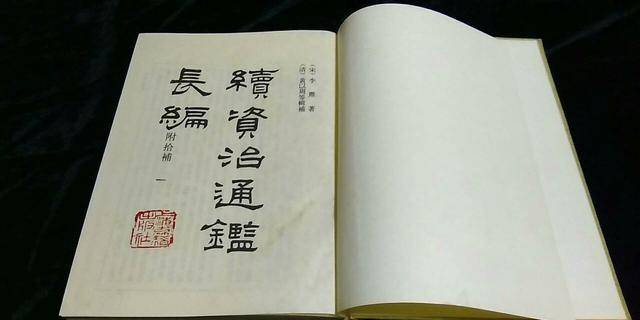 （宋）李燾著
（清）黃以周等輯補
續資治通鑑
長編
附拾補
一